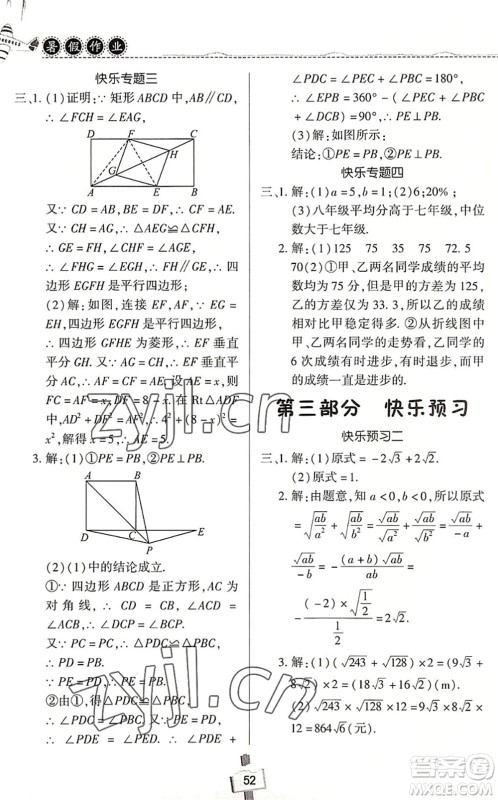 暑假作业
快乐专题三
三、1. (1)证明:∵ 矩形 ABCD 中,AB∥CD,
∴ ∠FCH=∠EAG,
D F C
H
G
A E B
又∵ CD=AB,BE=DF,∴ CF=AE.
又∵ CH=AG,∴ △AEG≌△CFH,
∴ GE=FH,∠CHF=∠AGE.
∴ ∠FHG=∠EGH,∴ FH∥GE,∴ 四
边形 EGFH 是平行四边形;
(2)解:如图,连接 EF,AF,∵ EG=
EH,四边形 EGFH 是平行四边形,∴ 四
边形 GFHE 为菱形,∴ EF 垂直平
分 GH.又∵ AG=CH,∴ EF 垂直平分
AC,∴ AF=CF=AE.设 AE=x,则
FC=AF=x,DF=8-x.在 Rt△ADF
中,AD²+DF²=AF²,∴ 4²+(8-x)²=
x²,解得 x=5,∴ AE=5.
3. 解:(1)①PE=PB,②PE⊥PB.
A B
D C E
P
(2)(1)中的结论成立.
①∵ 四边形 ABCD 是正方形,AC 为
对角线,∴ CD=CB,∠ACD=∠ACB.
又∵ PC=PC,∴ △PDC≌△PBC,
∴ PD=PB.
∵ PE=PD,∴ PE=PB.
②由①,得△PDC≌△PBC,
∴ ∠PDC=∠PBC.又∵ PE=PD,∴
∠PDE=∠PED.∴ ∠PDE+
∠PDC=∠PEC+∠PBC=180°,
∴ ∠EPB=360°-(∠PEC+∠PBC+
∠DCB)=90°,∴ PE⊥PB.
(3)解:如图所示:
结论:①PE=PB;②PE⊥PB.
快乐专题四
三、1. 解:(1)a=5,b=1;(2)6;20%;
(3)八年级平均分高于七年级,中位
数大于七年级.
2. 解:(1)125 75 35 72.5
70(2)①甲、乙两名同学成绩的平均
数均为 75 分,但是甲的方差为 125,
乙的方差仅为 33.3,所以乙的成绩相
对比甲稳定得多.②从折线图中甲、
乙两名同学的走势看,乙同学的
6 次成绩有时进步,有时退步,而甲
的成绩一直是进步的.
第三部分 快乐预习
快乐预习二
三、1. (1)原式=-2√3+2√2.(2)原式=1.
2. 解:由题意,知 a<0,b<0,所以原式
=√(ab/a²)+√(ab/b²)=√(ab)/√(a²)+√(ab)/√(b²)=√(ab)/(-a)+
√(ab)/(-b)=-(a+b)√(ab)/(ab)=
-(-2)×√(1/2)/(1/2)=2√2.
3. 解:(1)(√243+√128)×2=(9√3+
8√2)×2=(18√3+16√2)(cm).
(2)√243×√128=9√3×8√
2=864√6(cm²).
52
zyjl.cn
zyjl.cn
答案圈
MXQE.COM